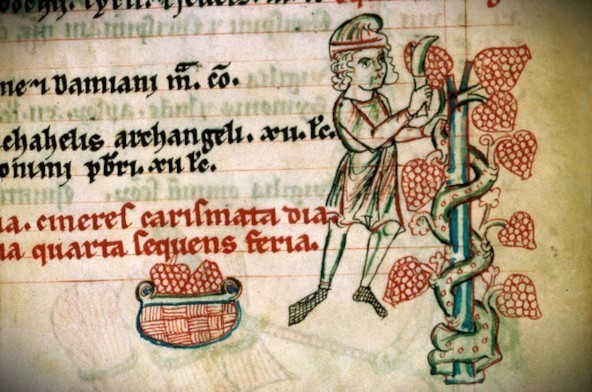 ne ⁊ Damiani m̄. cō.
chahelis archangeli. xii. lc̄.
onimi p̄bri. xii lc̄.
ia. cineres carismata dia
ia quarta sequens feria.